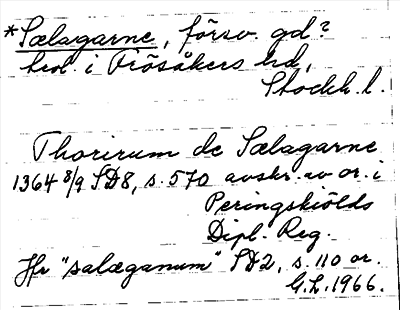 *Sælagarne, försv. gd?
hrd. i Frösåkers hd,
Stockh. l.
Thorirum de Sælagarne
1364 8/9 SD8, s. 570 avskr. av or. i
Peringskiölds
Dipl. Reg.
Jfr "salæganum" SD2, s. 110 or.
G.L. 1966.